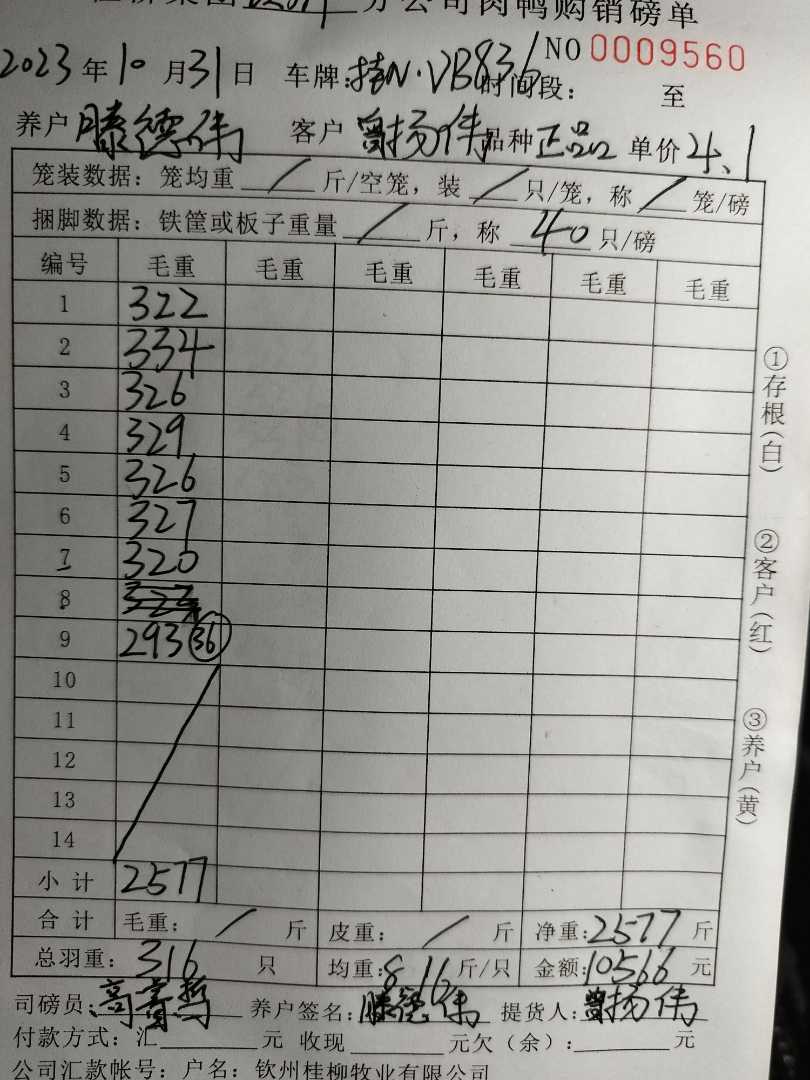 分公司肉鸭购销磅单
NO 0009560
2023年10月31日 车牌:桂N·VB836 时间段: 至
养户 滕德伟 客户 曾扬伟 品种 正品 单价 4.1
笼装数据: 笼均重 / 斤/空笼, 装 / 只/笼, 称 / 笼/磅
捆脚数据: 铁筐或板子重量 / 斤, 称 40 只/磅
编号 毛重 毛重 毛重 毛重 毛重 毛重
1 322
2 334
3 326
4 329
5 326
6 327
7 320
8
9 293 36
10
11
12
13
14
小计 2577
合计 毛重: / 斤 皮重: / 斤 净重: 2577 斤
总羽重: 316 只 均重: 8.16 斤/只 金额: 10566 元
司磅员: 养户签名: 滕德伟 提货人: 曾扬伟
付款方式: 汇 元 收现 元欠(余): 元
公司汇款帐号: 户名: 钦州桂柳牧业有限公司
①存根(白)
②客户(红)
③养户(黄)